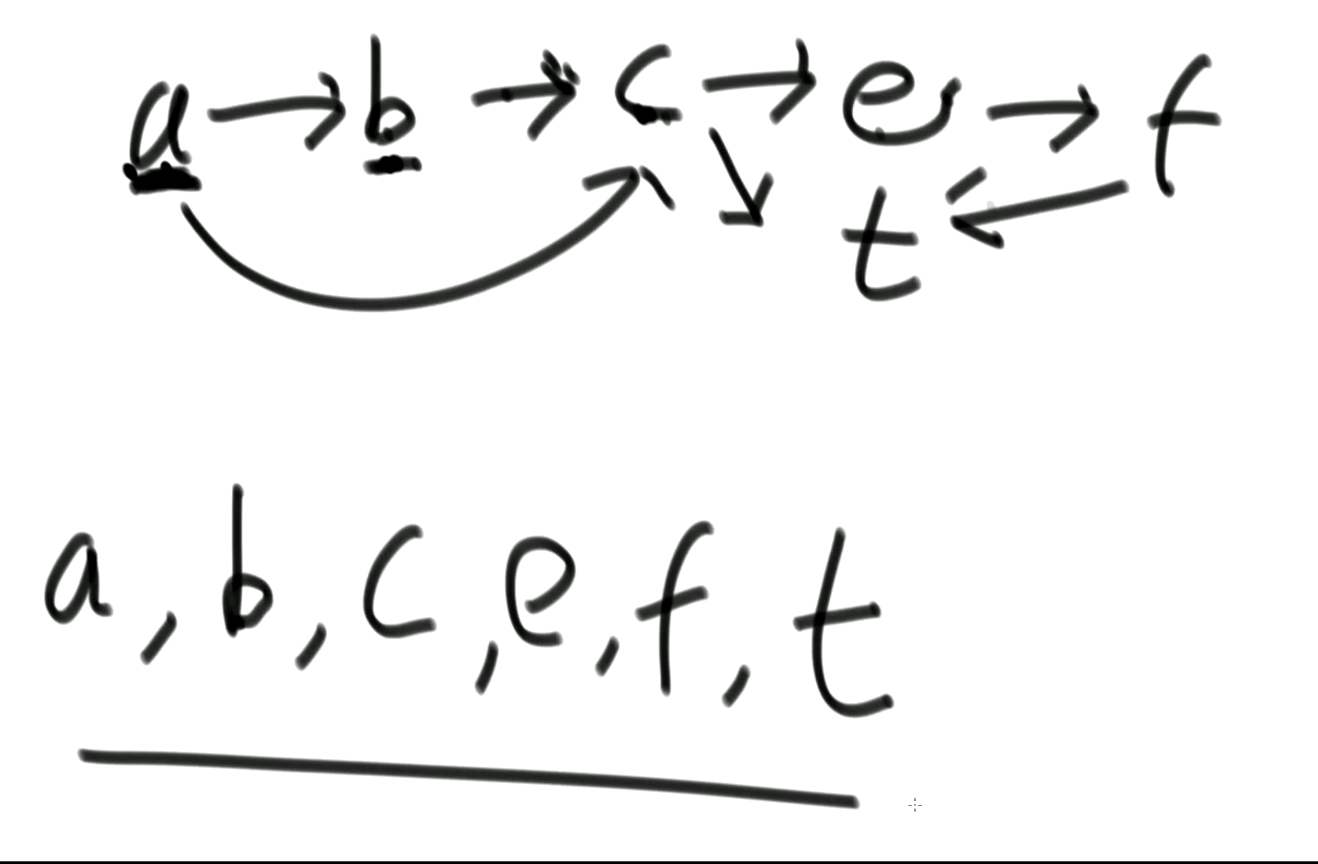 a → b → c → e → f
t
a, b, c, e, f, t